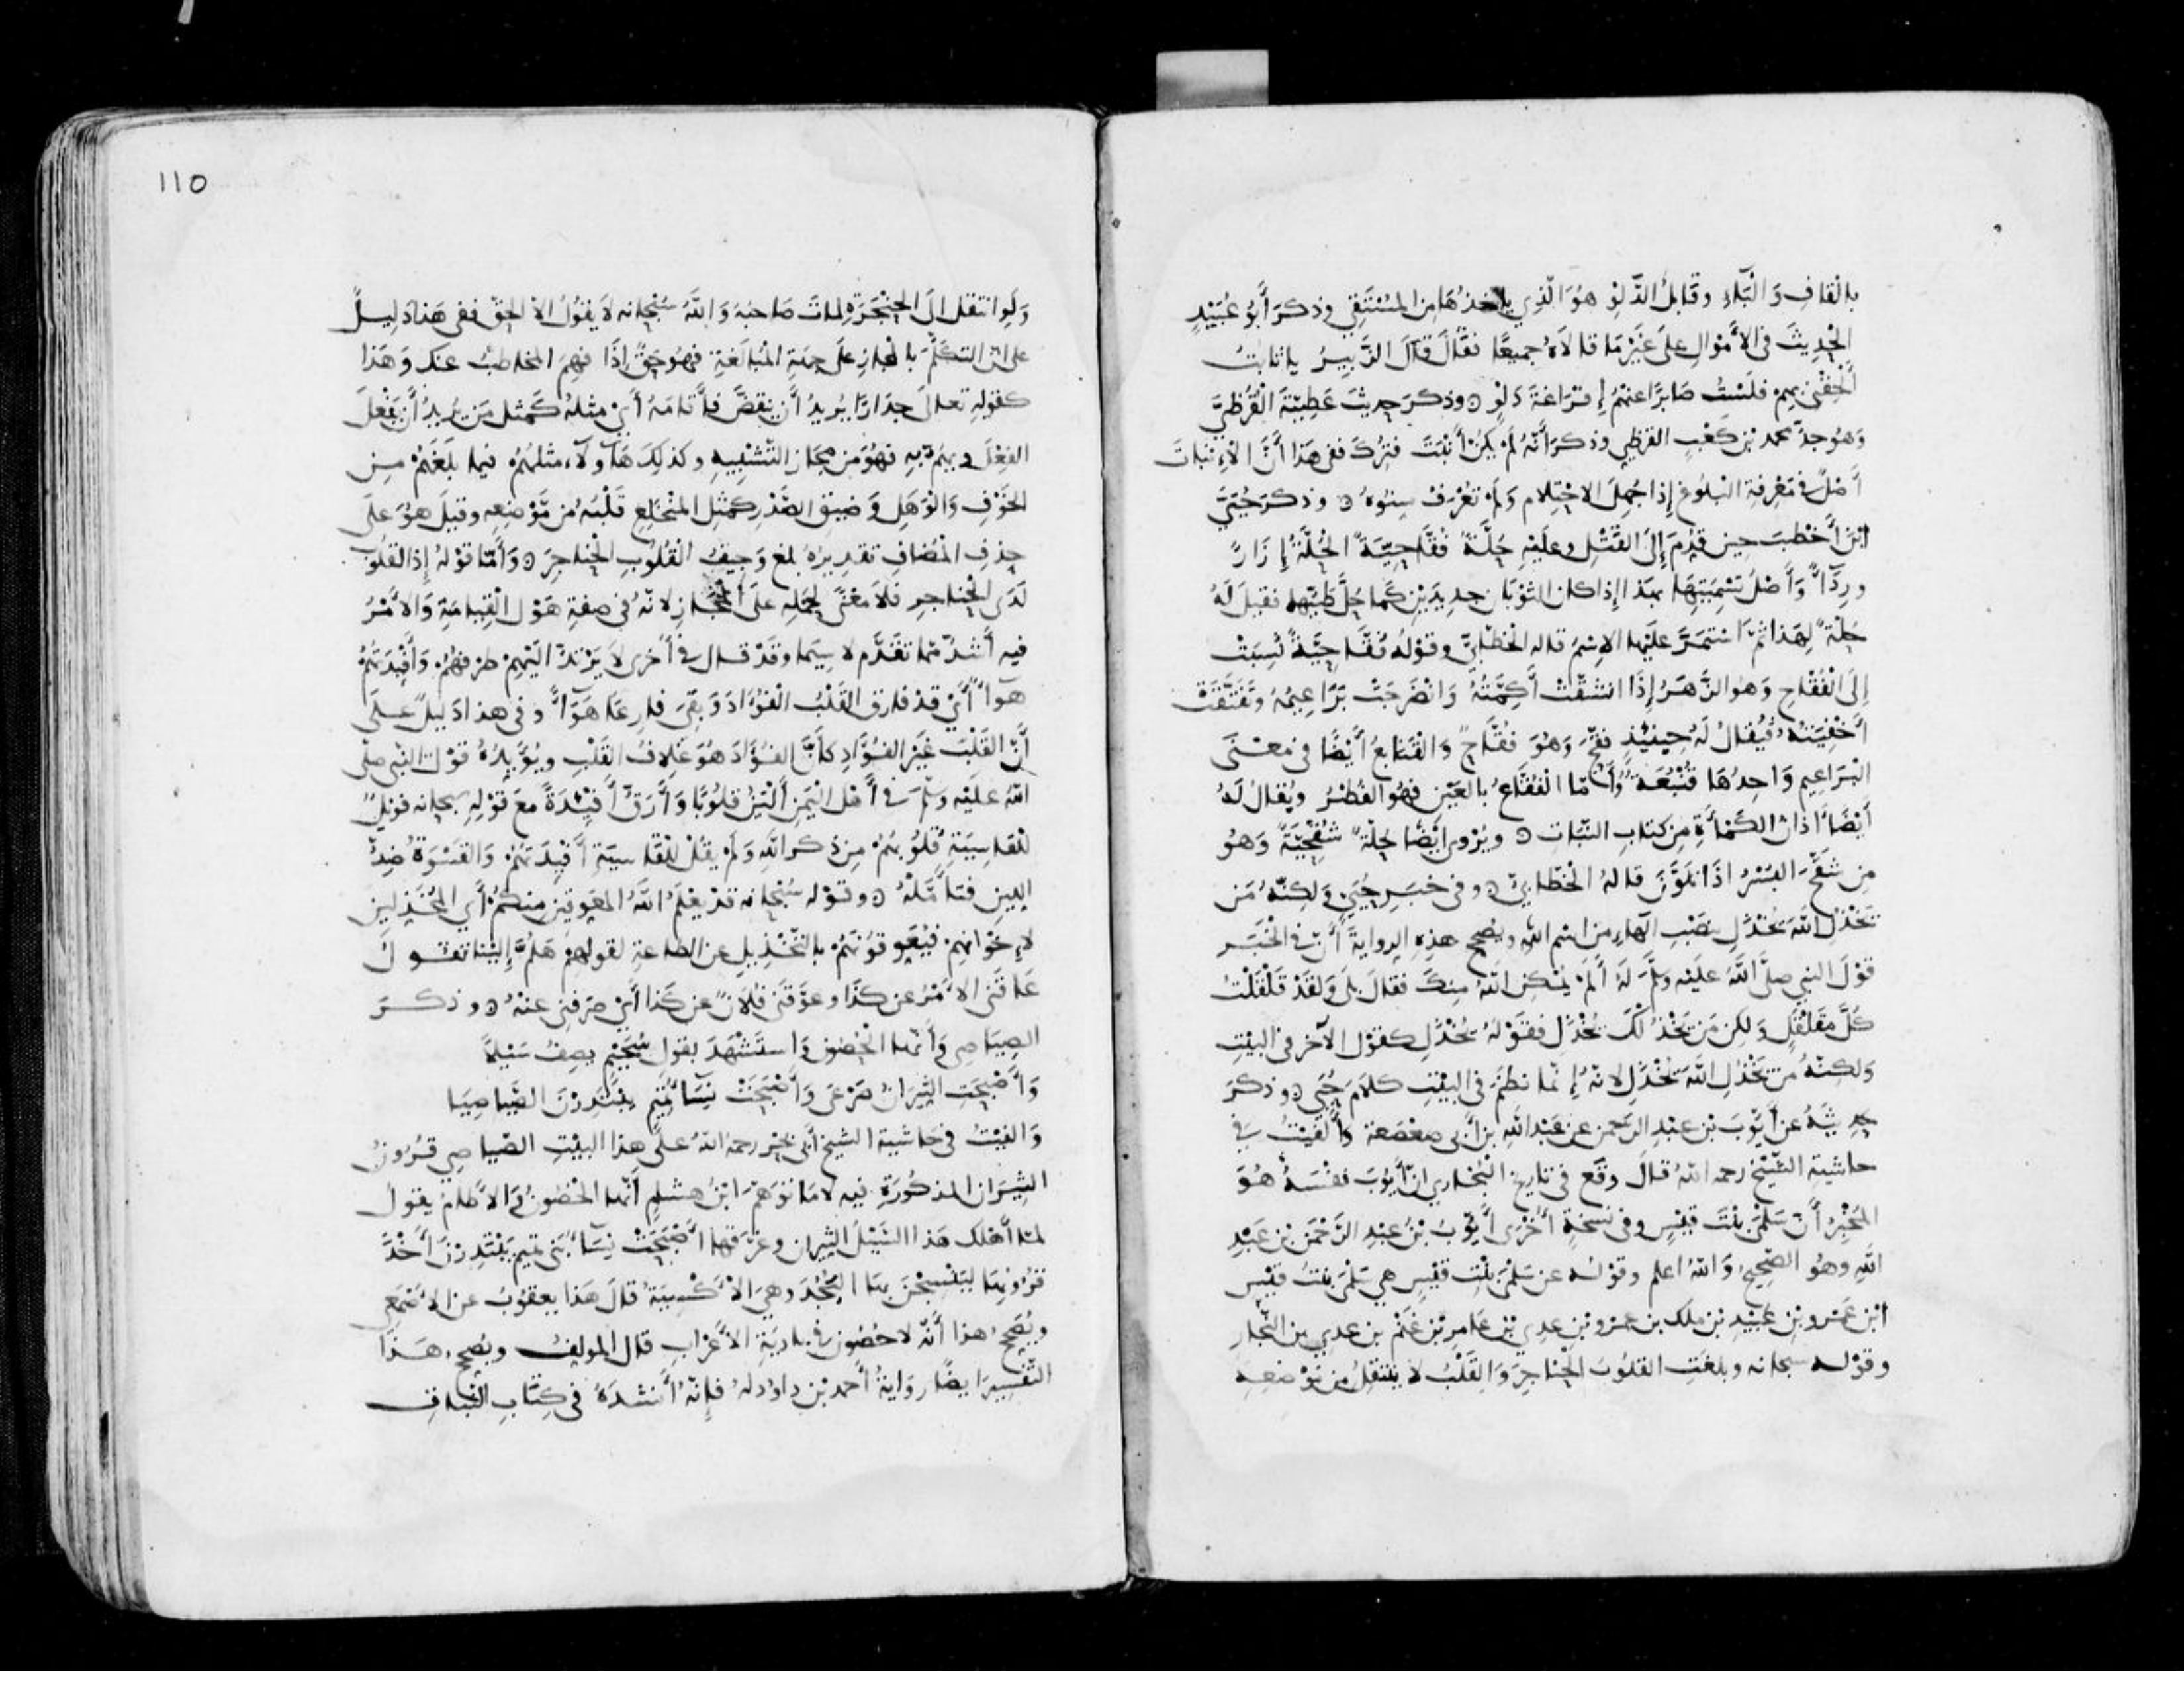 بِالْقَافِ وَالْبَاءِ وَقَابِلُ الدَّلْوِ هُوَ الَّذِي يَاخُذُهَا مِنَ الْمُسْتَقِي وَذَكَرَ أَبُو عُبَيْدٍ
الْحَدِيثَ فِي الأَمْوَالِ عَلَى غَيْرِ مَا قَالاَهُ جَمِيعًا فَقَالَ قَالَ الزَّبِيرُ يَا ثَابِتُ
أَلْحِقْنِي بِهِمْ فَلَسْتُ صَابِرًا عَنْهُمْ إِفْرَاغَةَ دَلْوٍ وَذَكَرَ حَدِيثَ عَطِيَّةَ الْقُرَظِيِّ
وَهُوَ جَدُّ محمد بْنِ كَعْبٍ القرظي وذكر أَنَّهُ لَمْ يَكُنْ أَنْبَتَ فَتُرِكَ فَفِي هَذَا أَنَّ الإِنْبَاتَ
أَصْلٌ فِي مَعْرِفَةِ الْبُلُوغِ إِذَا جُهِلَ الاحْتِلَام وَلَمْ تُعْرَفْ سِنُوهُ وذكر حُيَيَّ
ابْنَ أَخْطَبَ حِينَ قُدِّمَ إِلَى الْقَتْلِ وعَلَيْهِ حُلَّةٌ فُقَّاحِيَّةٌ الْحُلَّةُ إِزَارٌ
وَرِدَآءٌ وَأَصْلُ تَسْمِيَتِهَا بِهَذَا إِذَا كان الثَّوْبَانِ جَدِيدَيْنِ كَمَا حُلَّ طَيُّهما فَقِيلَ لَهُ
حُلَّةٌ لِهَذَا ثُمَّ اسْتَمَرَّ عَلَيْهَا الاسْمُ قاله الْخَطَّابِيُّ وقَوْلُهُ فُقَّاحِيَّةٌ نُسِبَتْ
إِلَى الْفُقَّاحِ وَهُوَ الزَّهَرُ إِذَا انْشَقَّتْ أَكِمَّتُهُ وَانْضَرَجَتْ بَرَاعِيمُهُ وَتَفَتَّقَتْ
أَخْفِيَتُهُ فَيُقَالُ لَهُ حِينَئِذٍ فَقَّحَ وَهُوَ فُقَّاحٌ وَالْقَنَابِعُ أَيْضًا فِي مَعْنَى
الْبَرَاعِيمِ وَاحِدُهَا قُنْبُعَةٌ وَأَمَّا الْفُقَّاعُ بِالْعَيْنِ فَهُوَ الْفُطْرُ وَيُقَالُ لَهُ
أَيْضًا آذَانُ الْكَمْأَةِ مِنْ كِتَابِ النَّبَاتِ وَيُرْوَى أَيْضًا حُلَّةٌ شُقَحِيَّةٌ وَهُوَ
مِنْ شَقَّحَ الْبُسْرُ إِذَا تَلَوَّنَ قَالَهُ الْخَطَّابِيُّ وَفِي خَبَرِ حُيَيٍّ وَلَكِنَّهُ مَنْ
يَخْذُلِ اللَّهَ يُخْذَلِ بِنَصْبِ الْهَاءِ مِنِ اسْمِ اللَّهِ وَيُصَحِّحُ هَذِهِ الرِّوَايَةَ أَنَّ فِي الْخَبَرِ
قَوْلَ النبي صَلَّى اللَّهُ عَلَيْهِ وَسَلَّمَ لَهُ أَلَمْ يُمْكِنِ اللَّهُ مِنْكَ فَقَالَ بَلَى وَلَقَدْ قَلْقَلْتُ
كُلَّ مُقَلْقَلٍ وَلَكِنْ مَنْ يَخْذُلْكَ يُخْذَلْ فَقَوْلُهُ يُخْذَلِ كَقَوْلِ الآخَرِ فِي الْبَيْتِ
وَلَكِنَّهُ مَنْ يَخْذُلِ اللَّهَ يُخْذَلِ لانَّهُ إِنَّمَا نَظَمَ فِي الْبَيْتِ كَلَامَ حُيَيٍّ وَذَكَرَ
حَدِيثَهُ عَنْ أَيُّوبَ بْنِ عَبْدِ الرَّحْمنِ عَنْ عَبْدِ اللَّهِ بن أَبِي صَعْصَعة وَأَلْفَيْتُ فِي
حَاشِيَةِ الشَّيْخِ رحمه اللَّهُ قَالَ وَقَعَ فِي تَارِيخِ الْبُخَارِي أَنَّ أَيُّوبَ نَفْسَهُ هُوَ
المُخْبِرُ أَنَّ سَلْمَى بِنْتَ قَيْسٍ وَفِي نُسْخَةٍ أُخْرَى أَيُّوبُ بْنُ عَبْدِ الرَّحْمَنِ بْنِ عَبْدِ
اللَّهِ وَهُوَ الصَّحِيحُ وَاللَّهُ أعلم وقَوْلُه عن سَلْمَى بِنْتِ قَيْسٍ هِيَ سَلْمَى بِنْتُ قَيْسِ
ابْنِ عَمْرِو بْنِ عُبَيْدِ بْنِ مَلِك بن عَمْرِو بْنِ عَدِي بْنِ عَامِرِ بْنِ غَنْمِ بن عدي بن النَّجَّار
وقوْله سبحانه وبلغت القلوبُ الحناجر وَالقَلْبُ لا يَنْتَقِلُ مِنْ مَوْضِعِهِ
110
وَلَوِ انْتَقَلَ إِلَى الْحَنْجَرَةِ لمات صَاحِبُهُ وَاللَّهُ سُبْحَانه لاَ يَقُولُ إِلاَّ الْحَقَّ فَفِي هَذا دَلِيلٌ
على أَنَّ التَّكَلُّمَ بِالْمَجَازِ عَلَى جِهَةِ الْمُبَالَغَةِ فَهُوَ حَقٌّ إِذَا فَهِمَ المُخَاطَبُ عَنكَ وَهَذَا
كَقَوْلِهِ تعالى جِدَارًا يُرِيدُ أَنْ يَنْقَضَّ فَأَقَامَهُ أَيْ مِثْلُهُ كَمَثَلِ مَنْ يُرِيدُ أَنْ يَفْعَلَ
الفِعْلَ وَيَهُمُّ بِهِ فَهُوَ مِنْ مَجَازِ التَّشْبِيهِ وَكَذَلِكَ هَآوُلَآءِ مَثَلُهُمْ فِيمَا بَلَغَهُمْ مِنَ
الْخَوْفِ وَالْوَهَلِ وَضِيقِ الصَّدْرِ كَمَثَلِ الْمُنْخَلِعِ قَلْبُهُ مِنْ مَوْضِعِهِ وَقِيلَ هُوَ عَلَى
حَذْفِ الْمُضَافِ تَقْدِيرُهُ بَلَغَ وَجِيفُ الْقُلُوبِ الْحَنَاجِرَ وَأَمَّا قَوْلُهُ إِذِ الْقُلُوبُ
لَدَى الْحَنَاجِرِ فَلاَ مَعْنَى لِحَمْلِهِ عَلَى الْمَجَازِ لانَّهُ فِي صِفَةِ هَوْلِ الْقِيَامَةِ وَالأَمْرُ
فيه أَشَدُّ مِمَّا تَقَدَّم لا سِيَّمَا وَقَدْ قال فِي أُخْرَى لاَ يَرْتَدُّ إِلَيْهِمْ طَرْفُهُمْ وَأَفْئِدَتُهُمْ
هَوَآءٌ أَيْ قَدْ فَارَقَ الْقَلْبُ الْفُؤَادَ وَبَقِيَ فَارِغًا هَوَآءً وَفِي هَذَا دَلِيلٌ عَلَى
أَنَّ الْقَلْبَ غَيْرُ الفُؤَادِ كَأَنَّ الفُؤَادَ هُوَ غِلاَفُ القَلْبِ وَيُؤَيِّدُهُ قَوْلُ النَّبِي صلى
اللَّهُ عَلَيْهِ وَسَلَّمَ فِي أَهْلِ الْيَمَنِ أَلْيَنُ قُلُوبًا وَأَرَقُّ أَفْئِدَةً مَعَ قَوْلِهِ سبحانه فَوَيْلٌ
لِلْقَاسِيَةِ قُلُوبُهُمْ مِنْ ذِكْرِ اللَّهِ وَلَمْ يَقُلْ لِلْقَاسِيَةِ أَفْئِدَتُهُمْ وَالْقَسْوَةُ ضِدُّ
اللِّينِ فَتَأَمَّلْهُ وَقَوْله سُبْحَانه قَدْ يَعْلَمُ اللَّهُ المعوقين مِنْكُمْ أَيِ المُخَذِّلِينَ
لإِخْوَانِهِمْ فَيُعَوِّقُونَهُمْ بِالتَّخْذِيلِ عَنِ الطَّاعَةِ لقولهم هَلُمَّ إِلَيْنَا تَقُولُ
عَاقَنِي الأَمْرُ عَنْ كَذَا وَعَوَّقَنِي فُلاَنٌ عَنْ كَذَا أَيْ صَرَفَنِي عَنْهُ وذكر
الصَّيَاصِي وَأَنَّهَا الْحُصُون وَاسْتَشْهَدَ بِقَوْلِ سُحَيْمٍ يَصِفُ سَيْلاً
وَأَصْبَحَتِ الثِّيرَانُ صَرْعَى وَأَصْبَحَتْ نِسَآءُ تَمِيمٍ يَبْتَدِرْنَ الصَّيَاصِيَا
وَأَلْفَيْتُ فِي حَاشِيَةِ الشيخ أَبِي بَحْرٍ رحمه اللَّهُ عَلَى هَذَا الْبَيْتِ الصَّيَاصِي قُرُونُ
الثِّيَرَانِ الْمَذْكُورَةِ فِيهِ لاَ مَا تَوَهَّمَ ابْنُ هِشَامٍ أَنَّهَا الْحُصُونُ وَالآطَامُ يَقُولُ
لَمَّا أَهْلَكَ هَذَا السَّيْلُ الثِّيرَان وَغَرَّقَهَا أَصْبَحَتْ نِسَآءُ بَنِي تَمِيم يَبْتَدِرْنَ أَخْذَ
قُرُونِهَا لِيَنْسِجْنَ بِهَا الْبُجُدَ وَهِيَ الأَكْسِيَةُ قَالَ هَذَا يعقُوبُ عن الأَصْمَعِي
وَيُصَحِّحُ هَذَا أَنَّهُ لا حُصُونَ فِي بَادِيَةِ الأَعْرَابِ قَالَ المؤلِّفُ وَيُصَحِّحُ هَذَا
التَّفْسِيرَ أيضًا رِوَايَةُ أَحمد بْنِ دَاوُد لَهُ فَإِنَّهُ أَنْشَدَهُ فِي كِتَابِ النَّبَاتِ